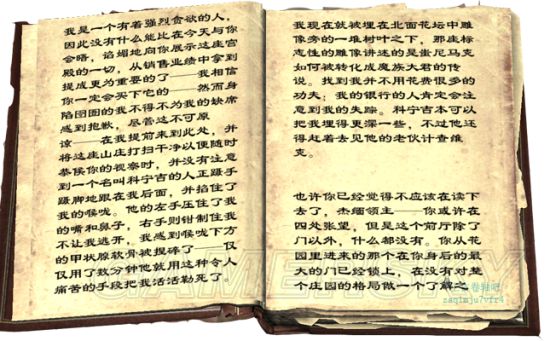 我是一个有着强烈贪欲的人，
因此没有什么能比在今天与你
会晤，谄媚地向你展示这座宫
殿的一切，从销售业绩中拿到
提成更为重要的了——我相信
你一定会买下它的——然而身
陷囹圄的我不得不为我的缺席
感到抱歉，尽管这不可原
谅——在我提前来到此处，并
将这座山庄打扫干净以便随时
恭候你的视察时，并没有注意
到一个名叫科宁吉的人正蹑手
蹑脚地跟在我后面，并掐住了
我的喉咙。他的左手压住了我
的嘴和鼻子，右手则钳制住我
不让我逃开，我感到喉咙下方
的甲状腺软骨被捏碎了——仅
仅用了数分钟他就用这种令人
痛苦的手段把我活活勒死了
我现在就被埋在北面花坛中雕
像旁的一堆树叶之下，那座标
志性的雕像讲述的是蚩尼马克
如何被转化成魔族大君的传
说。找到我并不用花费很多的
功夫：我的银行的人肯定会注
意到我的失踪。科宁吉本可以
把我埋得更深一些，不过他还
得赶着去见他的老伙计查维
克。
也许你已经觉得不应该在读下
去了，杰缅领主——你或许在
四处张望，但是这个前厅除了
门以外，什么都没有。你从花
园里进来的那个在你身后的最
大的门已经锁上，在没有对整
个庄园的格局做一个了解之
GAMERSKY
zaqimju7vfr4